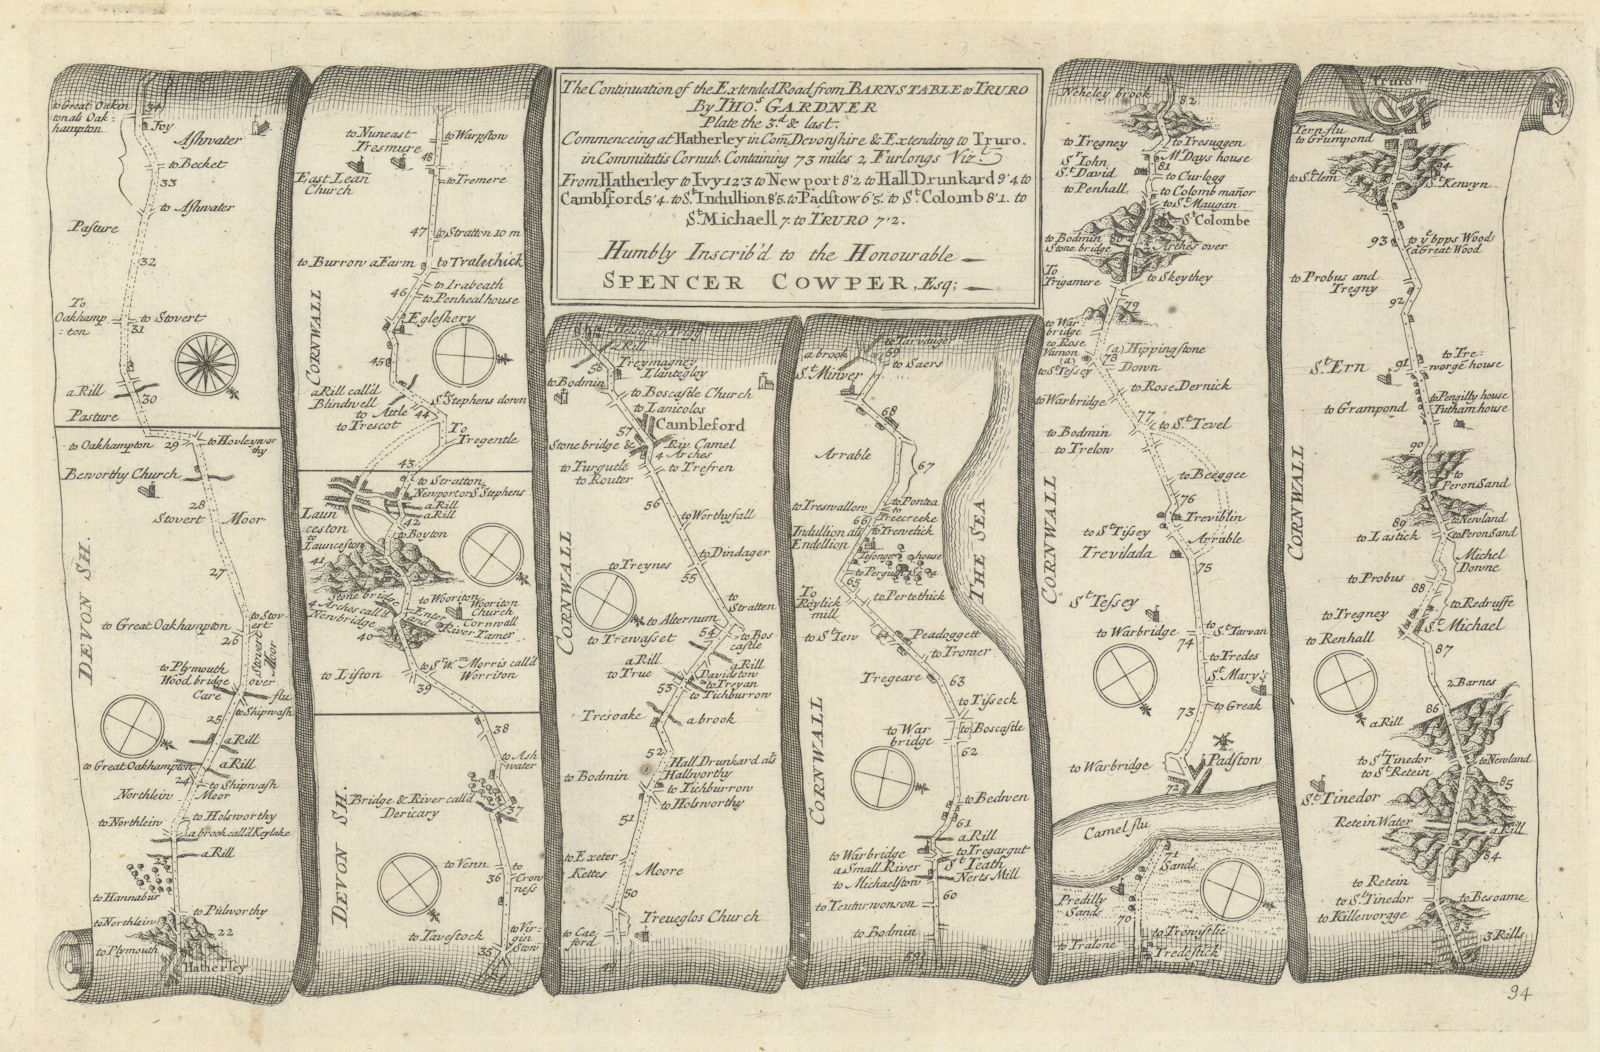 The Continuation of the Extended Road from BARNSTABLE to TRURO
By THOs. GARDNER
Plate the 3.d & last.
Commenceing at Hatherley in Com. Devonshire & Extending to Truro.
in Commitatis Cornub. Containing 73 miles 2, Furlongs Viz.t
From Hatherley to Ivy 12'3 to New port 8'2. to Hall Drunkard 9'4. to
Camblsford 5'4. to St. Indullion 8'5. to Padstow 6'5. to St. Colomb 8'1. to
St. Michaell 7. to TRURO 7'2.
Humbly Inscrib'd to the Honourable
SPENCER COWPER, Esq;
to Great Oakin
ton als Oak=
hampton
34
Ivy
Ashwater
to Becket
33
to Ashwater
Pasture
32
To
Oakhamp
=ton
to Stovert
31
a Rill
30
Pasture
to Oakhampton
29
to Hovleywor
thy
Beworthy Church
28
Stovert
Moor
27
DEVON SH.
to Great Oakhampton
to Stov=
ert
26
Stovert Moor
to Plymouth
Wood bridge
over
Care
flu
to Shipwash
25
a Rill
to Great Oakhampton
a Rill
24
to Shipwash
Moor
Northlein
to Northlein
to Holsworthy
a brook call'd Keylake
a Rill
23
to Hannabur
to Pulworthy
to Northlein
22
to Plymouth
Hatherley
to Nuneast
Tresmure
to Warpston
48
East Lean
Church
to Tremere
47
to Stratton 10 m
to Burrow a Farm
to Tralechick
to Trabeath
46
to Penheal house
Egleskery
CORNWALL
45
a Rill call'd
Blindwell
St. Stephens down
to Attle
44
to Trescot
To
Tregentle
43
to Stratton
Newport on St. Stephens
a Rill
a Rill
Laun
ceston
to
Launceston
42
to Boyton
41
Stone bridge
4 Arches call'd
Newbridge
to Wooriton
Wooriton
Church
Enter
Cornwall
and
River Tamer
40
to Lifton
to St. Wm. Morris call'd
Worriton
39
38
to Ash
water
Bridge & River call'd
Dericary
37
DEVON SH.
to Venn
36
to
Crow
ness
to Tavestock
to Vir=
gin
Stow
35
a Rill
Treymagney
58
Llantegloy
to Bodmin
to Boscastle Church
to Lanicolos
Cambleford
57
Stone bridge &
Riv. Camel
4 Arches
to Turgutle
to Trefren
to Router
56
to Worthyfall
to Dindager
to Treynes
55
CORNWALL
to
Stratten
to Alternum
54
to Trewasset
to Bos
castle
a Rill
to True
a Rill
Davidstow
to Treyan
53
to Tichburrow
Tresoake
a brook
52
Hall Drunkard als
Hallworthy
to Bodmin
to Tichburrow
to Holsworthy
51
to Exeter
Kettes
Moore
50
Treueglos Church
to Cae=
ford
49
to Tarvauger
69
a brook
to Saers
St. Minver
68
Arrable
67
to Treswallow
to Pontea
to
Treecreeke
66
to Trewetick
Indullion als
Endellion
Tesonger house
THE SEA
65
to Pertethick
To
Roylick
mill
to St. Tew
64
Peadoggett
to Tromer
Tregeare
63
to Tisseck
to War
bridge
to Boscastle
62
CORNWALL
to Bedwen
61
a Rill
to Warbridge
to Tregargut
a Small River
St. Teath
to Michaelstow
Nerts Mill
60
to Teuturwonson
to Bodmin
59
Neheley brook
82
to Tregney
to Tresuggen
St. Iohn
Mr. Days house
St. David
81
to Curlogg
to Penhall
to Colomb mañor
to St. Maugan
St. Colombe
to Bodmin
Stone bridge
80
Arches over
To
Trigamere
to Skeythey
79
to War=
bridge
to Rose
Vamon
(a)
(a) Hippingstone
78
Down
to St. Tessey
to Rose Dernick
to Warbridge
77
to St. Tevel
to Bodmin
to Trelow
to Beeggee
76
Treviblin
to St. Tissey
Arrable
Trevilada
75
CORNWALL
St. Tessey
to Warbridge
to
St. Tarvan
74
to Tredes
St. Mary's
73
to Greak
to Warbridge
Padstow
72
Camel flu
71
Sands
Predilly
Sands
70
to Tralone
to Trennselie
Tredestick
Truro
Tern flu
to Grumpond
94
to St. Clem
St. Kenwyn
93
to ye. bpps Wood
a Great Wood
to Probus and
Tregny
92
91
to Tre=
worge house
St. Ern
to Pengilty house
to Grampond
Tutham house
90
CORNWALL
to
Peron Sand
89
to Newland
to Peron Sand
to Lastick
Michel
Downe
to Probus
88
to Redruffe
to Tregney
St. Michael
to Renhall
87
2 Barnes
86
a Rill
to St. Tinedor
to St. Retein
to Newland
85
St. Tinedor
Retein Water
a Rill
84
to Retein
to St. Tinedor
to Besoame
to Killeworgge
83
3 Rills
94